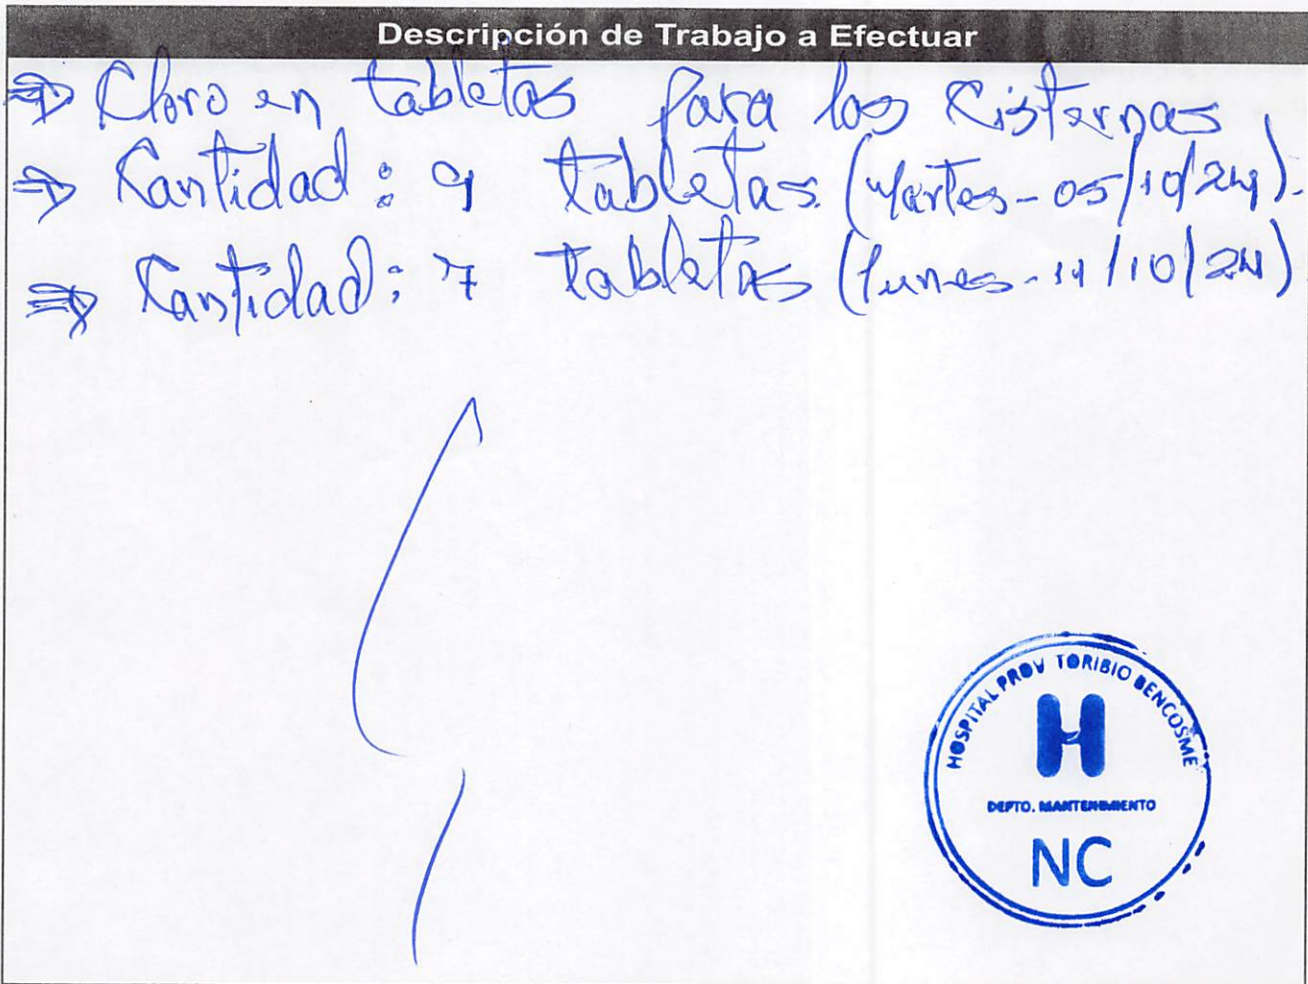 Descripción de Trabajo a Efectuar
⇒ Cloro en tabletas para las Cisternas,
⇒ Cantidad: 9 tabletas. (Martes-05/10/24).
⇒ Cantidad: 7 tabletas (lunes-11/10/24)
HOSPITAL PROV TORIBIO BENCOSME
H
DEPTO. MANTENIMIENTO
NC